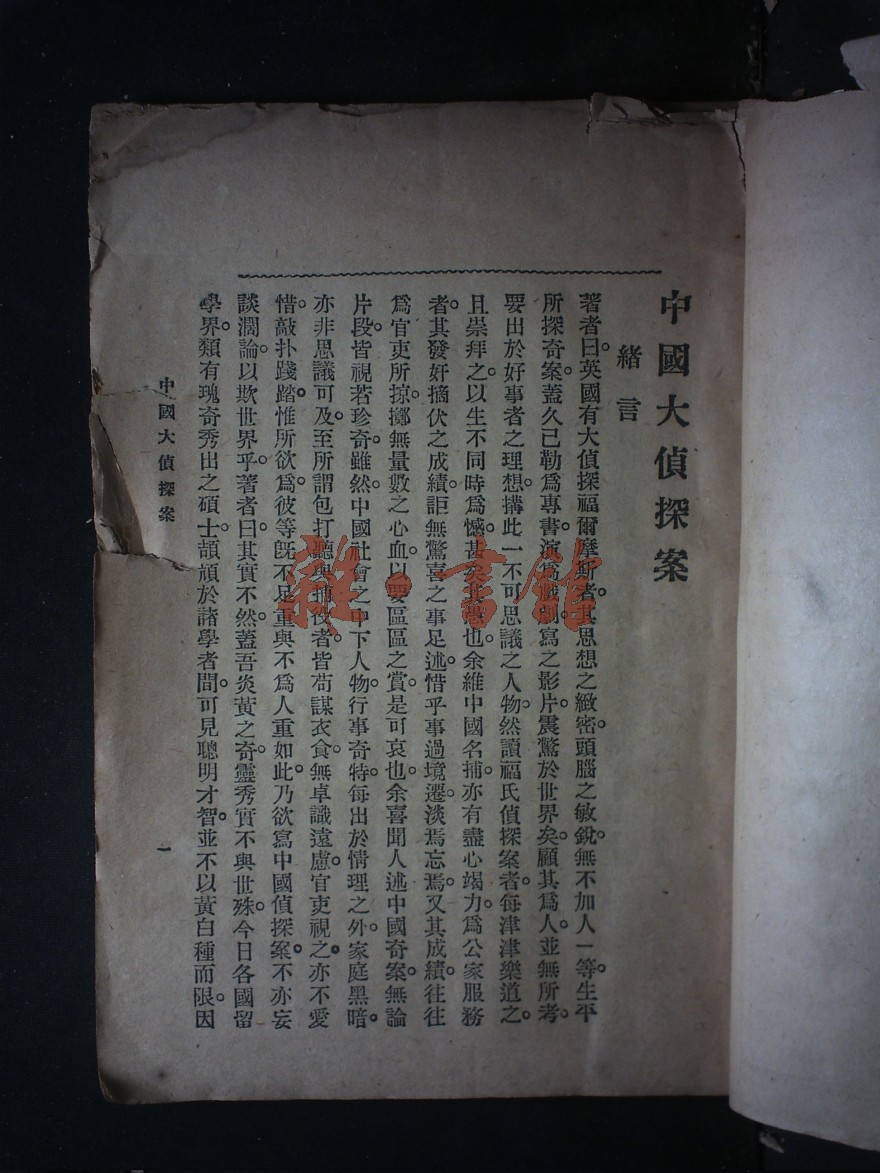 中國大偵探案
緒言
著者曰。英國有大偵探福爾摩斯者。其思想之緻密。頭腦之敏銳。無不加人一等。生平
所探奇案。蓋久已勒爲專書。演爲戲劇。寫之影片。震驚於世界矣。顧其爲人。並無所考。
要出於好事者之理想。搆此一不可思議之人物。然讀福氏偵探案者。每津津樂道之。
且崇拜之。以生不同時爲憾。甚矣其愚也。余維中國名捕。亦有盡心竭力。爲公家服務
者。其發奸摘伏之成績。詎無驚喜之事足述。惜乎事過境遷。淡焉忘焉。又其成績。往往
爲官吏所掠。擲無量數之心血。以要區區之賞。是可哀也。余喜聞人述中國奇案。無論
片段。皆視若珍奇。雖然。中國社會之中下人物。行事奇特。每出於情理之外。家庭黑暗。
亦非思議可及。至所謂包打聽與捕役者。皆苟謀衣食。無卓識遠慮。官吏視之。亦不愛
惜。敲扑踐踏。惟所欲爲。彼等既不足重。與不爲人重如此。乃欲寫中國偵探案。不亦妄
談濶論。以欺世界乎。著者曰。其實不然。蓋吾炎黃之奇靈秀。實不與世殊。今日各國留
學界。類有瑰奇秀出之碩士。頡頏於諸學者間。可見聰明才智。並不以黃白種而限。因
中國大偵探案
一
雜·書館